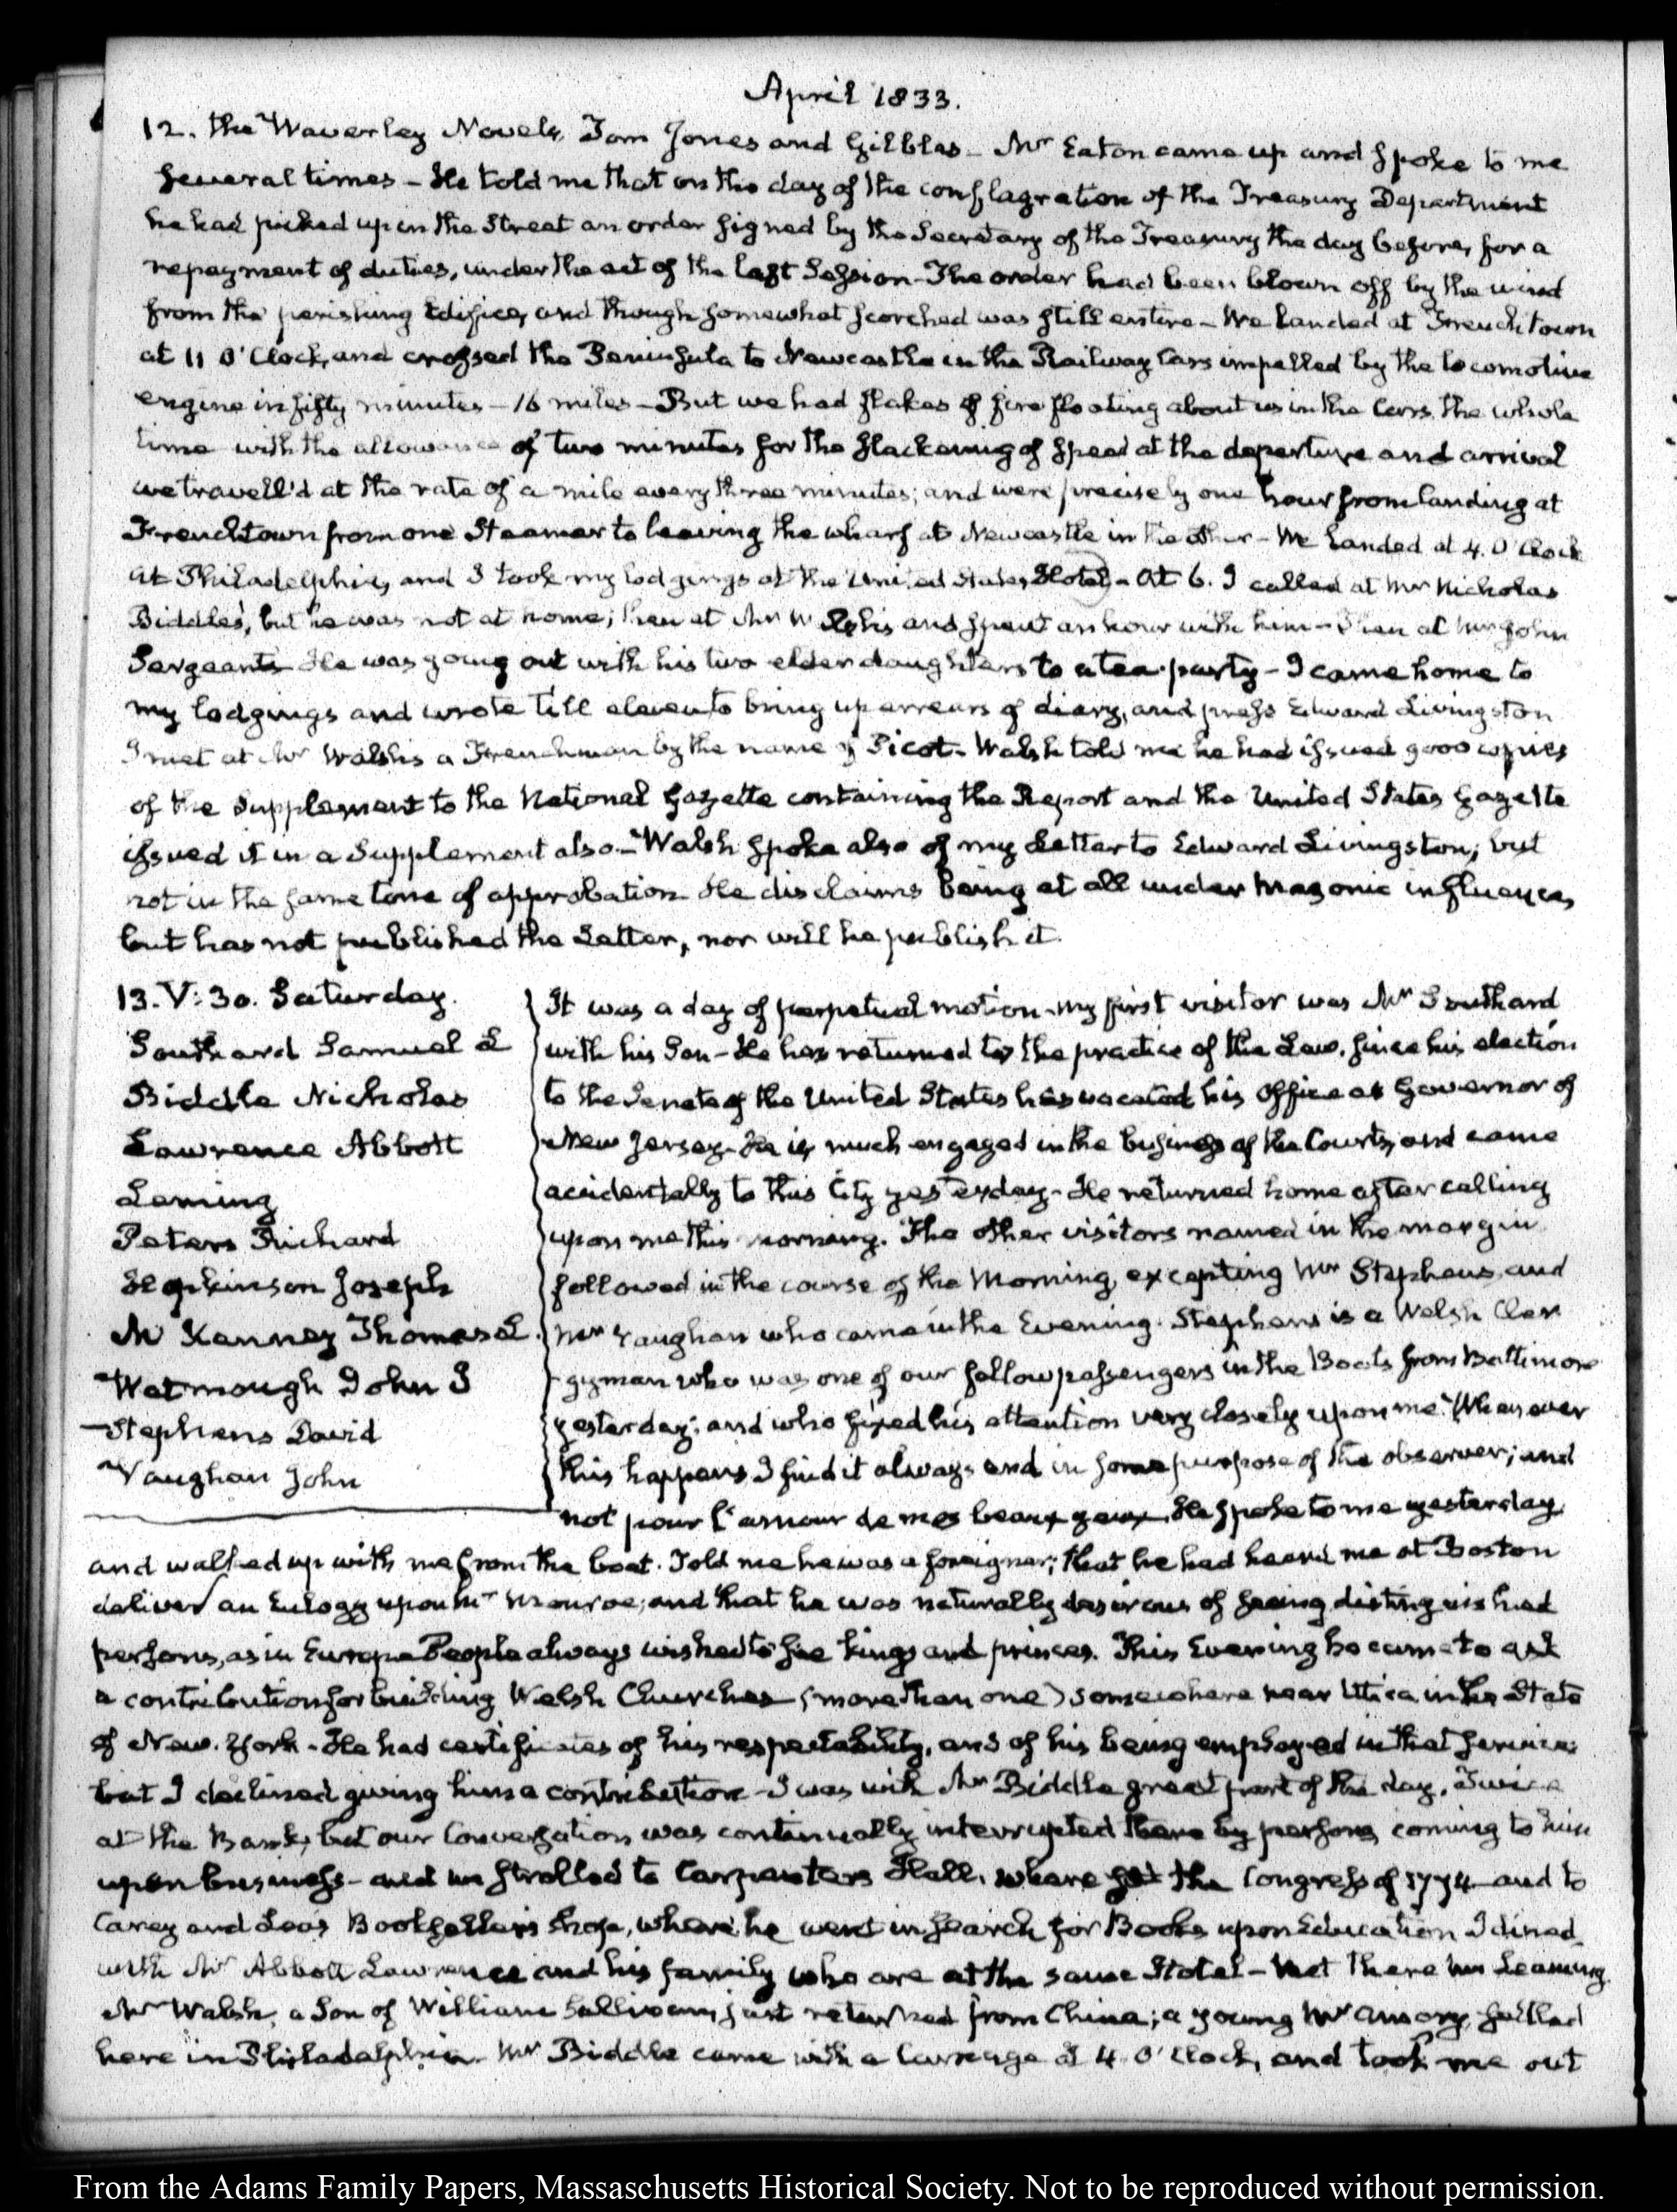 April 1833.
12. the Waverley Novels, Tom Jones and Gilblas - Mr Eaton came up and spoke to me
several times - He told me that on the day of the conflagration of the Treasury Department
he had picked up in the Street an order signed by the Secretary of the Treasury the day before, for a
repayment of duties, under the act of the last Session - The order had been blown off by the wind
from the perishing Edifice, and though somewhat scorched was still entire - We landed at Frenchtown
at 11 O'Clock, and crossed the Peninsula to Newcastle in the Railway Cars impelled by the locomotive
engine in fifty minutes - 16 miles - But we had flakes of fire floating about us in the Cars the whole
time with the allowance of two minutes for the slackening of speed at the departure and arrival
we travell'd at the rate of a mile every three minutes; and were precisely one hour from landing at
Frenchtown from one Steamer to leaving the wharf at Newcastle in the other - We landed at 4. O'Clock
at Philadelphia, and I took my lodgings at the United States Hotel - At 6. I called at Mr Nicholas
Biddle's, but he was not at home; then at Mr Walsh's and spent an hour with him - Then at Mr John
Sergeant's He was going out with his two elder daughters to a tea-party - I came home to
my lodgings and wrote till eleven to bring up arrears of diary, and press Edward Livingston
I met at Mr Walsh's a Frenchman by the name of Picot - Walsh told me he had issued 9000 copies
of the Supplement to the National Gazette containing the Report and the United States Gazette
issued it in a Supplement also - Walsh spoke also of my Letter to Edward Livingston; but
not in the same tone of approbation He disclaims being at all under Masonic influence,
but has not published the Letter, nor will he publish it.
13. V: 30. Saturday.
Southard Samuel L
Biddle Nicholas
Lawrence Abbott
Leming
Peters Richard
Hopkinson Joseph
Mc Kenney Thomas L.
Watmough John G
Stephens David
Vaughan John
It was a day of perpetual motion - my first visitor was Mr Southard
with his Son - He has returned to the practice of the Law, since his election
to the Senate of the United States has vacated his Office as Governor of
New Jersey - He is much engaged in the business of the Courts, and came
accidentally to this City yesterday - He returned home after calling
upon me this morning. The other visitors named in the margin
followed in the course of the Morning, excepting Mr Stephens, and
Mr Vaughan who came in the Evening. Stephens is a Welsh Cler
gyman who was one of our fellow passengers in the Boats from Baltimore
yesterday; and who fixed his attention very closely upon me. Whenever
this happens I find it always end in some purpose of the observer; and
not pour l'amour de mes beaux yeux. He spoke to me yesterday
and walked up with me from the boat. Told me he was a foreigner; that he had heard me at Boston
deliver an Eulogy upon Mr Monroe; and that he was naturally desirous of seeing distinguished
persons, as in Europe People always wished to see kings and princes. This Evening he came to ask
a contribution for building Welsh Churches (more than one) somewhere near Utica in the State
of New-York - He had certificates of his respectability, and of his being employed in that service
but I declined giving him a contribution - I was with Mr Biddle great part of the day. Twice
at the Bank; but our Conversation was continually interrupted there by persons coming to him
upon business - and we strolled to Carpenters Hall, where sat the Congress of 1774 - and to
Carey and Lea's Bookseller's Shop, where he went in search for Books upon Education I dined
with Mr Abbott Lawrence and his family who are at the same Hotel - Met there Mr Leaming
Mr Walsh, a Son of William Sullivan, just returned from China; a young Mr Amory, settled
here in Philadelphia. Mr Biddle came with a Carriage at 4 O'Clock, and took me out
From the Adams Family Papers, Massachusetts Historical Society. Not to be reproduced without permission.